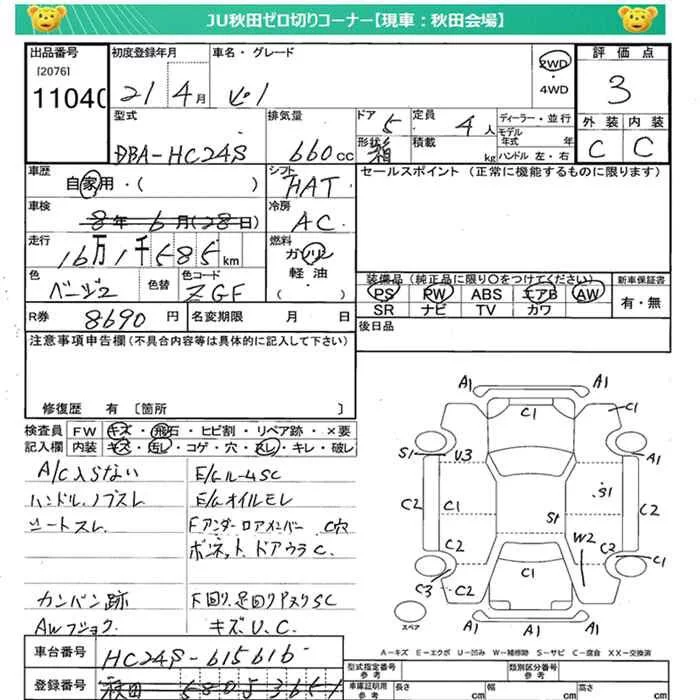 JU秋田ゼロ切りコーナー【現車：秋田会場】
出品番号 初度登録年月 車名・グレード 評価点
[2076]
1104 21 4月 ピノ 2WD・4WD 3
型式 排気量 ドア 定員 ディーラー・並行 外装 内装
DBA-HC24S 660cc 5 4人 モデル年式 年 C C
形状 箱 積載 kg ハンドル 左・右
車歴 シフト セールスポイント（正常に機能するものに限ります）
自家用・（ ） HAT
車検 冷房
8年6月(28日) AC
走行 燃料
16万1千585km ガソリン
軽油
( )
色 色替 色コード
ベージュ ZGF
装備品（純正品に限り○をつけてください） 新車保証書
PS PW ABS エアB AW 有・無
SR ナビ TV カワ
R券 8690円 名変期限 月 日 後日品
注意事項申告欄（不具合内容等は具体的に記入して下さい）
修復歴 有〔箇所 〕
検査員 FW キズ・飛石・ヒビ割・リペア跡・×要
記入欄 内装 キズ・汚レ・コゲ・穴・スレ・キレ・破レ
A/C入らない E/GルームSC
ハンドル、ノブスレ E/Gオイルモレ
シートスレ Fアンダーロアメンバー C穴
ボンネット、ドアウラC
カンバン跡 下回り、足回りアスクSC
AWフショク キズ、U、C
A1 A1
C1 C1
S1 U3 A1
S1
C2 C1 C2
S1
C2 W2 C2
C1 C1
C3 C2
A1 A1 A1
スペア
A－キズ E－エクボ U－凹み W－補修跡 S－サビ C－腐食 XX－交換済
車台番号 HC24S-615616
登録番号 秋田 580
型式指定番号 参考 類別区分番号 参考
車庫証明用 参考 長さ cm 幅 cm 高さ cm